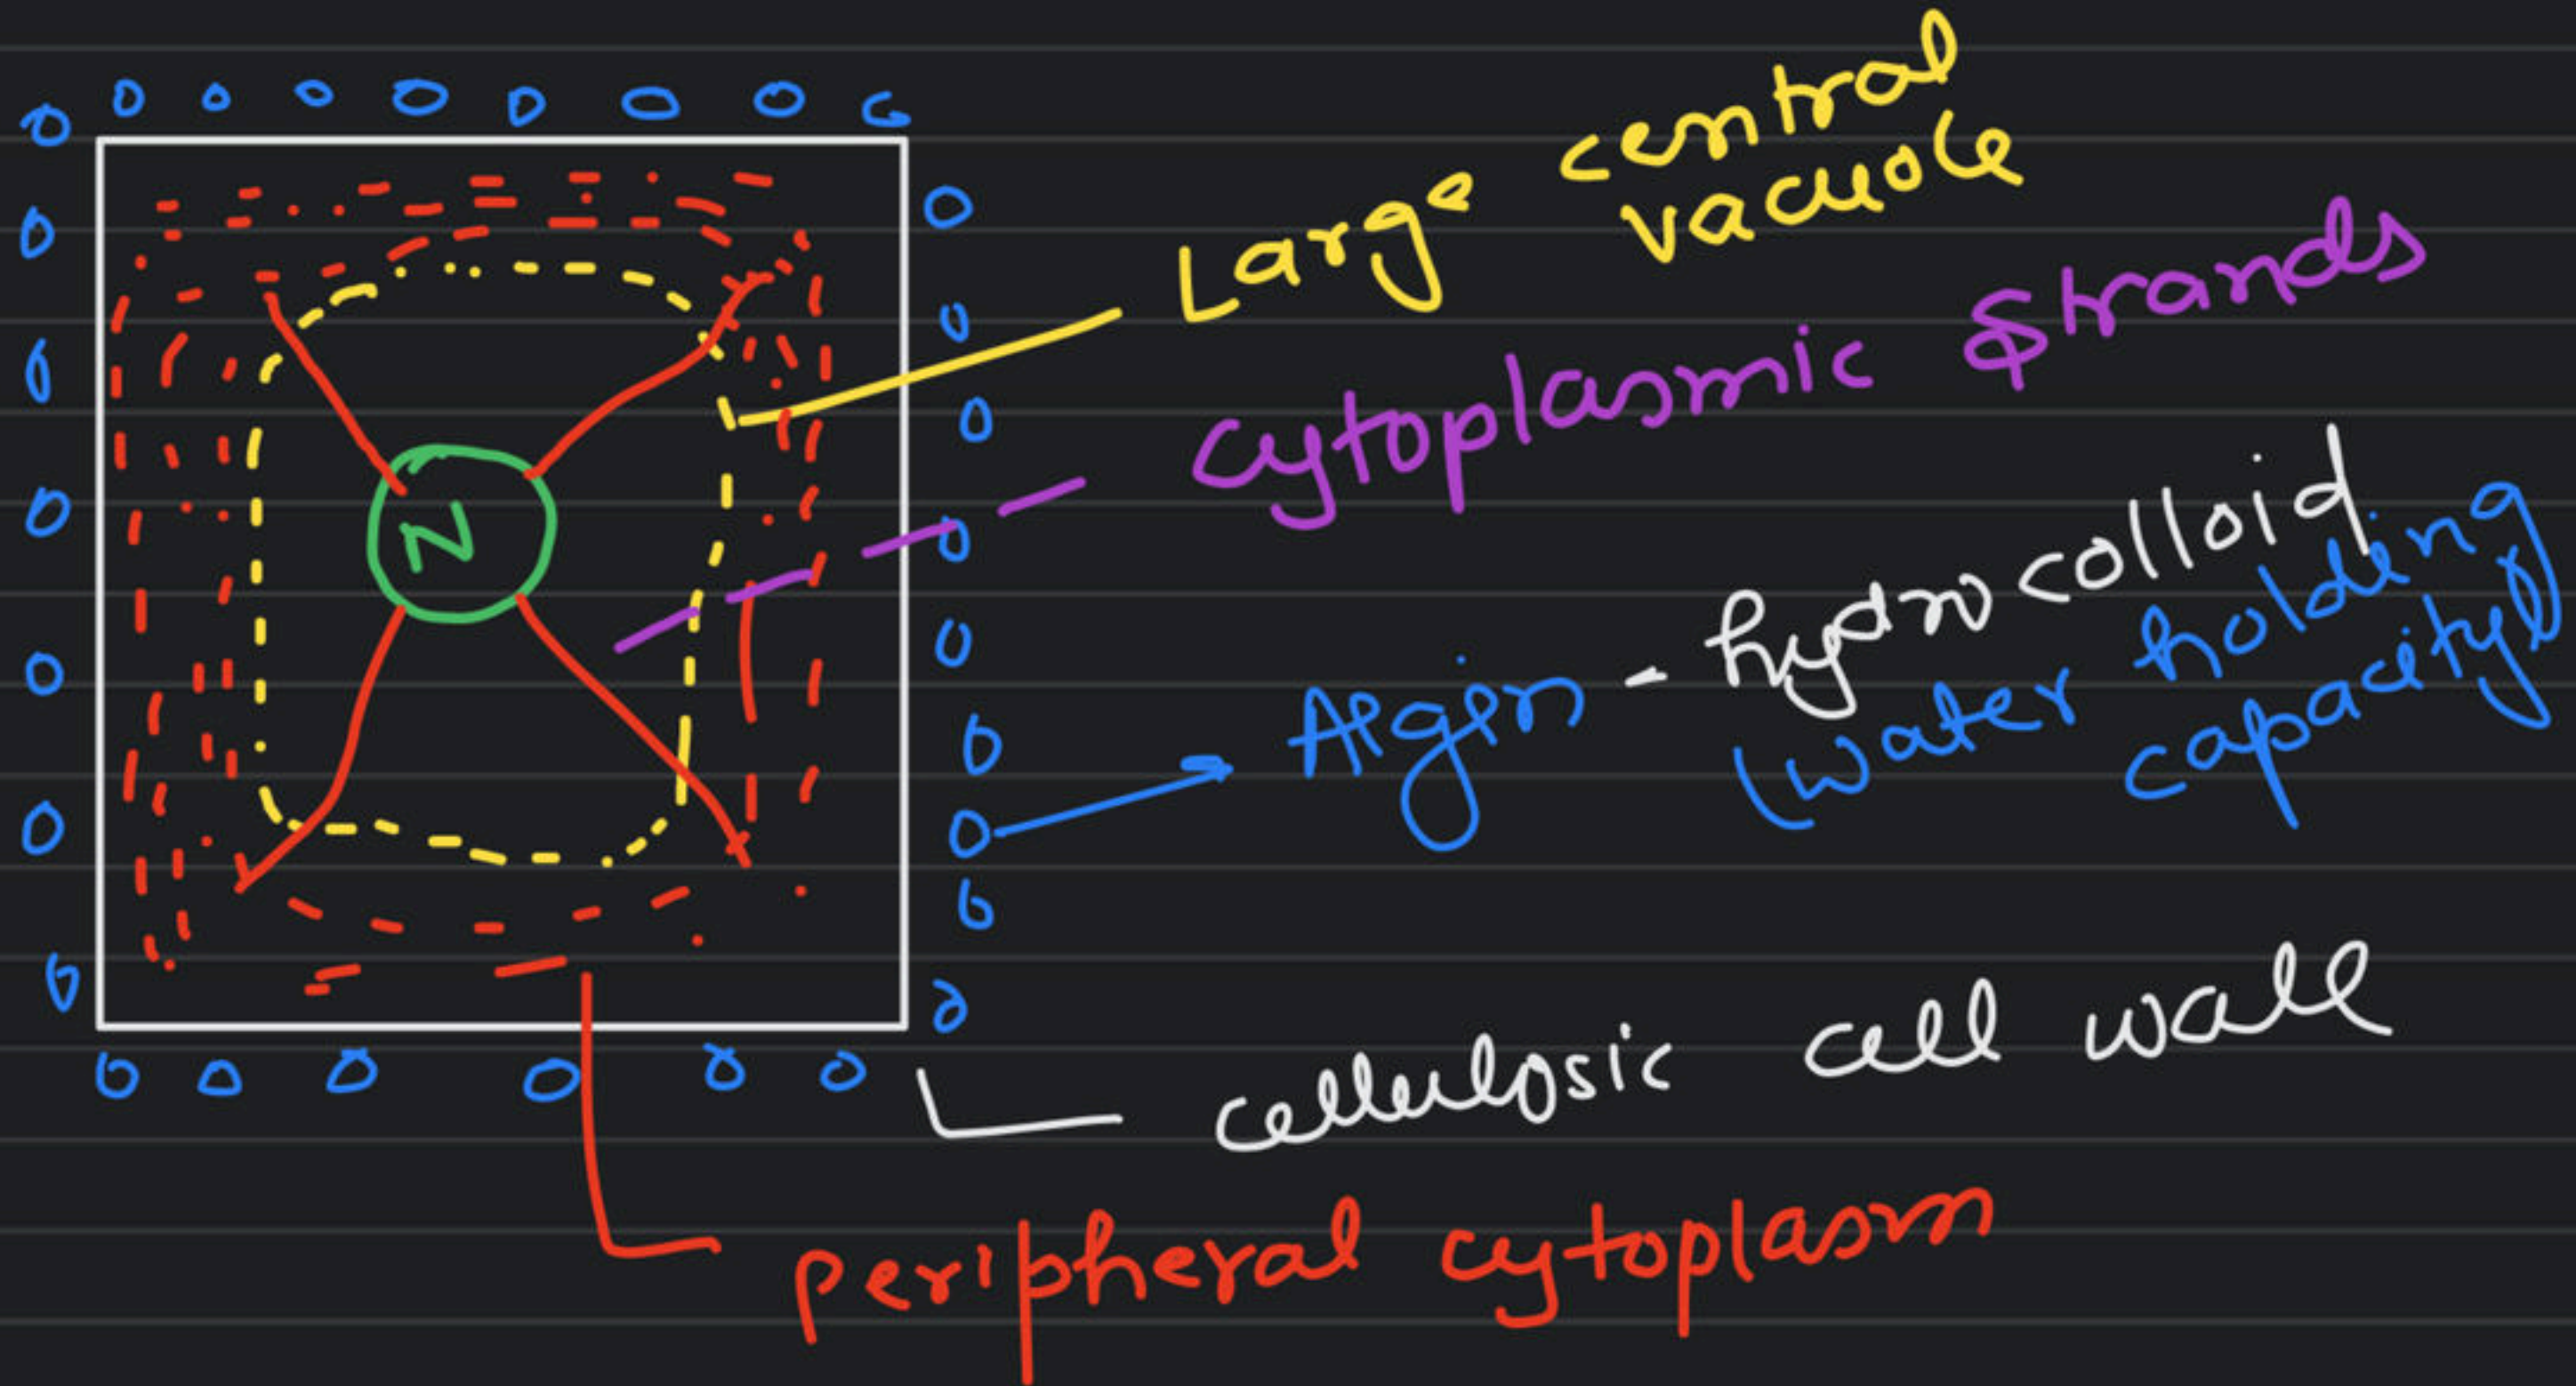 Large central
vacuole
cytoplasmic strands
N
Algin - hydrocolloid
(water holding
capacity)
cellulosic cell wall
peripheral cytoplasm